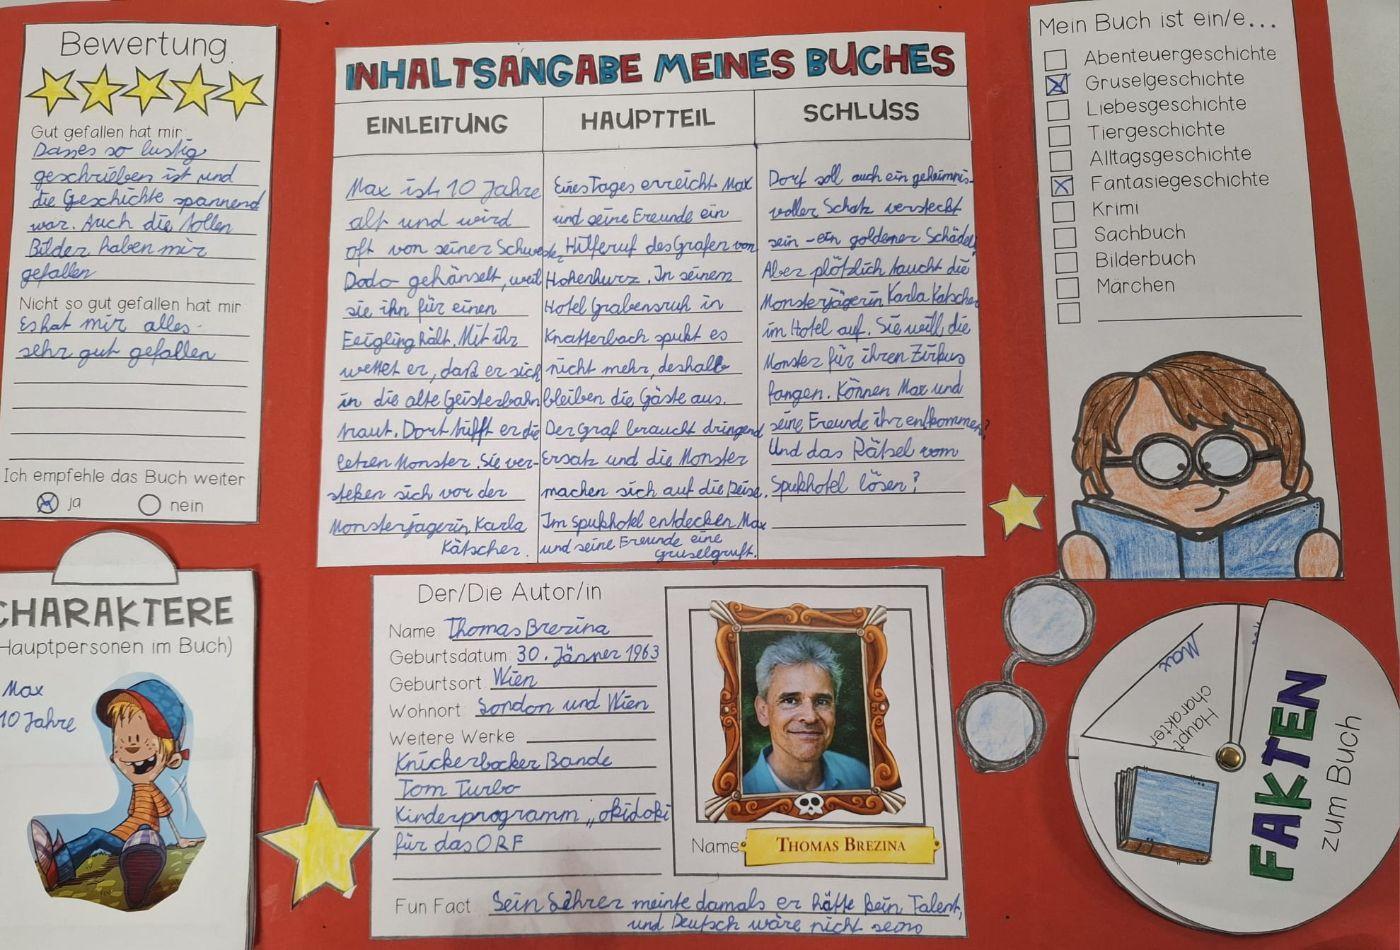 Bewertung
Gut gefallen hat mir
Dasses so lustig
geschrieben ist und
die Geschichte spannend
war. Auch die tollen
Bilder haben mir
gefallen
Nicht so gut gefallen hat mir
Es hat mir alles
sehr gut gefallen
Ich empfehle das Buch weiter
ja nein
CHARAKTERE
Hauptpersonen im Buch)
Max
10 Jahre
INHALTSANGABE MEINES BUCHES
EINLEITUNG
Max ist 10 Jahre
alt und wird
oft von seiner Schwester
Dodo gehänselt, weil
sie ihn für einen
Feigling hält. Mit ihr
wettet er, daß er sich
in die alte Geisterbahn
traut. Dort trifft er die
letzen Monster. Sie ver-
steken sich vor der
Monsterjägerin Karla
Kätscher.
HAUPTTEIL
Eines Tages erreicht Max
und seine Freunde ein
Hilferuf des Grafen von
Hohenhurz. In seinem
Hotel Grabensruh in
Knatterbach spukt es
nicht mehr, deshalb
bleiben die Gäste aus.
Der Graf braucht dringend
Ersatz und die Monster
machen sich auf die Reise.
Im Spukhotel entdecken Max
und seine Freunde eine
Gruselgruft.
SCHLUSS
Dort soll auch ein geheimnis-
voller Schatz versteckt
sein - ein goldener Schädel.
Aber plötzlich taucht die
Monsterjägerin Karla Kätscher
im Hotel auf. Sie will die
Monster für ihren Zirkus
fangen. Können Max und
seine Freunde ihr entkommen?
Und das Rätsel vom
Spukhotel lösen?
Der/Die Autor/in
Name Thomas Brezina
Geburtsdatum 30. Jänner 1963
Geburtsort Wien
Wohnort London und Wien
Weitere Werke
Knickerbocker Bande
Tom Turbo
Kinderprogramm „okidoki
für das ORF
Name THOMAS BREZINA
Fun Fact Sein Lehrer meinte damals er hätte kein Talent,
und Deutsch wäre nicht seins
Mein Buch ist ein/e...
Abenteuergeschichte
Gruselgeschichte
Liebesgeschichte
Tiergeschichte
Alltagsgeschichte
Fantasiegeschichte
Krimi
Sachbuch
Bilderbuch
Märchen
Max
Haupt
charakter
FAKTEN
zum Buch